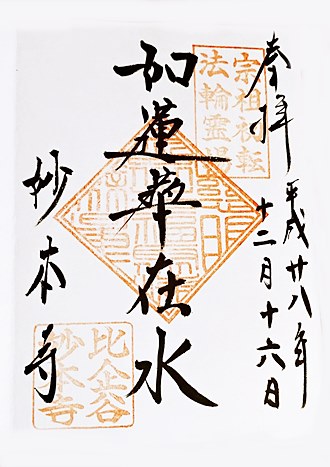 奉拝
平成廿八年
十二月十六日
宗祖初転
法輪霊場
如蓮華在水
妙本寺
比企谷
妙本寺